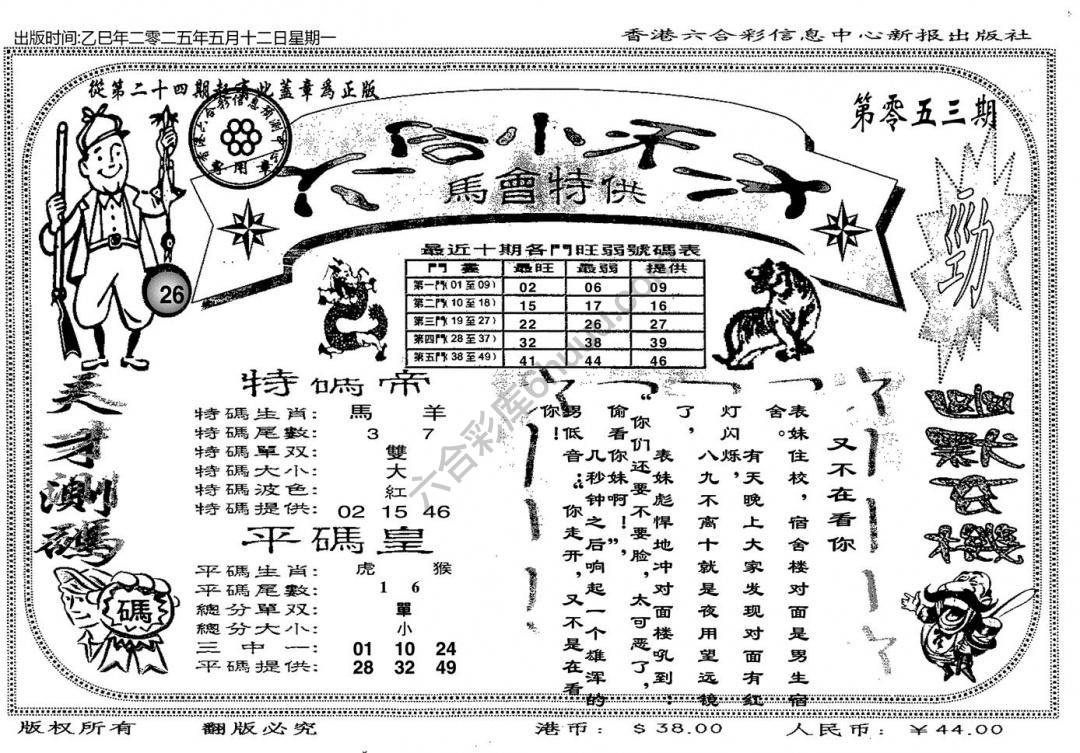 出版时间:乙巳年二零二五年五月十二日星期一
香港六合彩信息中心新报出版社
從第二十四期起有此蓋章爲正版
第零五三期
專用章
馬會特供
勁
26
最近十期各門旺弱號碼表
門 最旺 最弱 提供
第一門(01至09) 02 06 09
第二門(10至18) 15 17 16
第三門(19至27) 22 26 27
第四門(28至37) 32 38 39
第五門(38至49) 41 44 46
天才測碼
碼
特碼帝
特碼生肖: 馬 羊
特碼尾數: 3 7
特碼單双: 雙
特碼大小: 大
特碼波色: 紅
特碼提供: 02 15 46
平碼皇
平碼生肖: 虎 猴
平碼尾數: 1 6
總分單双: 單
總分大小: 小
三中一: 01 10 24
平碼提供: 28 32 49
又不在看你
表妹住校,宿舍楼对面是男生宿
舍。
有天晚上大家发现对面有红
灯闪烁,
八九不离十就是夜用望远镜
了,
表妹彪悍地冲对面楼吼到:
“你们还要不要脸,太可恶了,
偷看你妹啊!”,
几秒钟之后响起一个雄浑的
男低音:“你走开,又不是在看
你!
幽默玄機
六合彩库6huuu.com
版权所有
翻版必究
港币: $38.00
人民币: ¥44.00